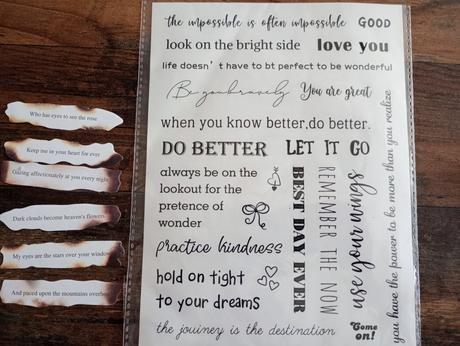 Who has eyes to see the rose
Keep me in your heart for ever
Gazing affectionately at you every night
Dark clouds become heaven's flowers
My eyes are the stars over your window
And paced upon the mountains overhead
the impossible is often impossible
GOOD
look on the bright side
love you
life doesn't have to bt perfect to be wonderful
Be youbravely
You are great
when you know better,do better.
DO BETTER
LET IT GO
always be on the
lookout for the
pretence of
wonder
practice kindness
hold on tight
to your dreams
BEST DAY EVER
REMEMBER THE NOW
use your wings
you have the power to be more than you realize
the jouiney is the destination
Come
on!